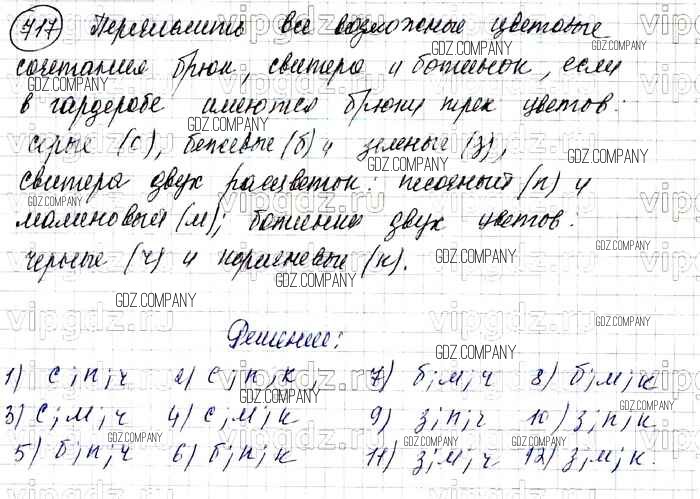 717 Перечислить все возможные цветовые
сочетания брюк, свитера и ботинок, если
в гардеробе имеются брюки трех цветов:
серые (с), бежевые (б) и зеленые (з),
свитера двух расцветок: песочный (п) и
малиновый (м); ботинки двух цветов:
черные (ч) и коричневые (к).
Решение:
1) с; п; ч 2) с; п; к, 7) б; м; ч 8) б; м; к
3) с; м; ч 4) с; м; к 9) з; п; ч 10) з; п; к
5) б; п; ч 6) б; п; к 11) з; м; ч 12) з; м; к.
GDZ.COMPANY
vipgdz.ru